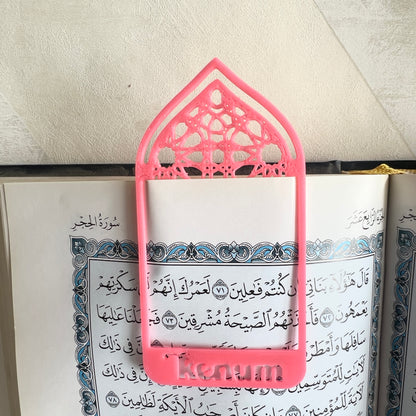 سُورَةُ الحِجْرِ
قَالَ هَٰٓؤُلَآءِ بَنَاتِىٓ إِن كُنتُمْ فَٰعِلِينَ ٧١ لَعَمْرُكَ إِنَّهُمْ لَفِى سَكْرَتِهِمْ
يَعْمَهُونَ ٧٢ فَأَخَذَتْهُمُ ٱلصَّيْحَةُ مُشْرِقِينَ ٧٣ فَجَعَلْنَا عَٰلِيَهَا
سَافِلَهَا وَأَمْطَرْنَا فِى ذَٰلِكَ
لِّلْمُتَوَسِّمِينَ إِنَّ فِى ذَٰلِكَ
أَصْحَٰبُ ٱلْأَيْكَةِ لَظَٰلِمِينَ ٧٨
kanum